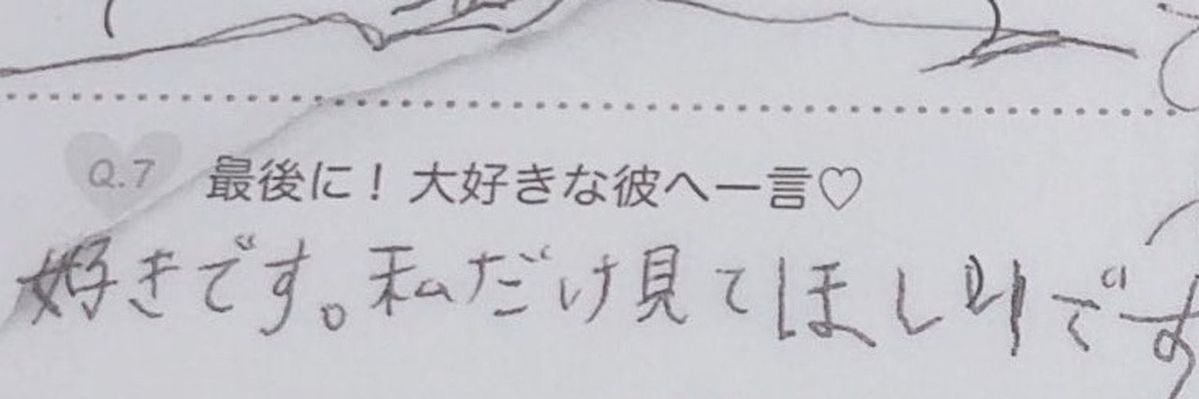 Q.7 最後に！大好きな彼へ一言♡
好きです。私だけ見てほしいです